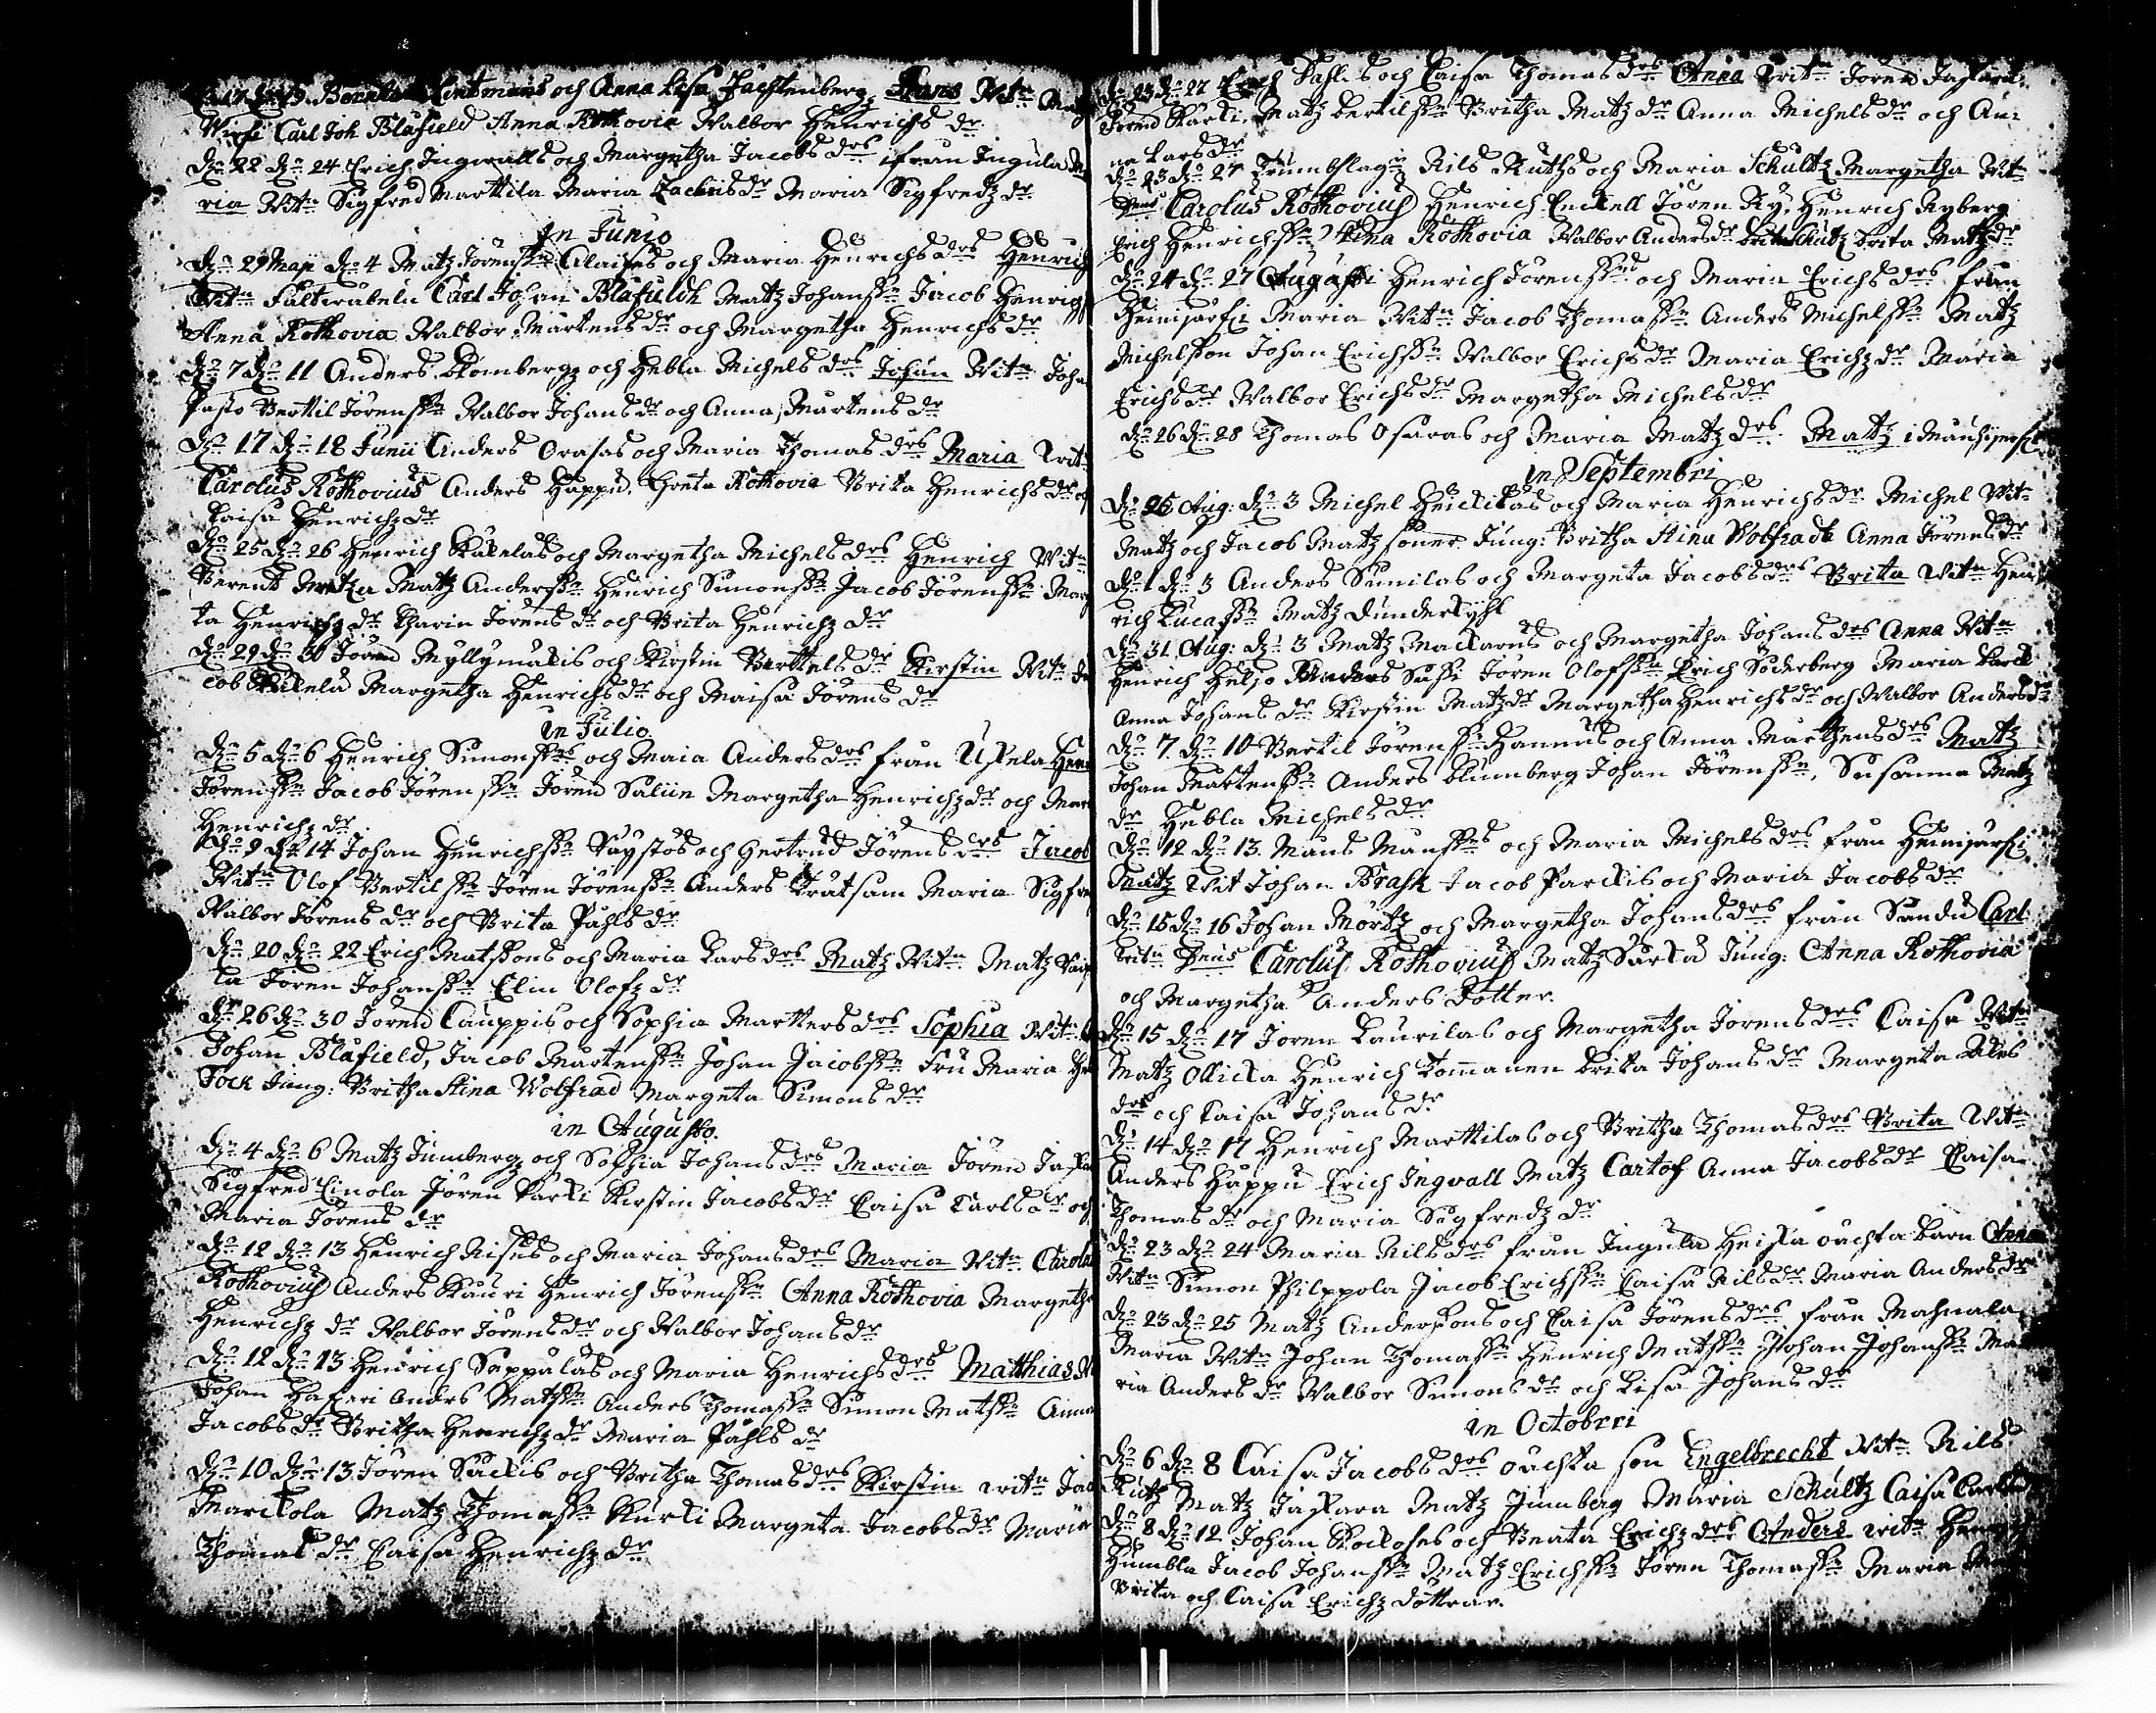 Dn 17 Dn 19. Berents Lintmans och Anna Lisa Fachtenberg, Hans Witn
Wirsi Carl Joh Blåfield Anna Rothovia Walbor Henrichs dr
Dn 22 Dn 24 Erich Ingwalls och Margetha Jacobs drs från Ingula Ma
ria Witn Sigfred Marttila Maria Zachrisdr Maria Sigfredz dr
In Junio
Dn 29 Maji Dn 4 Matz Jörenssn Alaises och Maria Henrichs drs Henrich
Witn Fältwäbeln Carl Johan Blåfieldh Matz Johanssn Jacob Henrigs
Anna Rothovia Walbor Mårtensdr och Margetha Henrichs dr
Dn 7 Dn 11 Anders Blombergz och Hebla Michels drs Johan Witn Joha
Pasto Bertil Jörenssn Walbor Johans dr och Anna Mårtens dr
Dn 17 Dn 18 Junii Anders Orasas och Maria Thomas drs Maria Witn
Carolus Rothovius Anders Happu, Greta Rothovia Brita Henrichs dr och
Caisa Henrichz dr
Dn 25 Dn 26 Henrich Kåkelas och Margetha Michels drs Henrich Witn
Berent Matz Anderssn Henrich Simonssn Jacob Jörenssn Marg
ta Henrichz dr Charin Jörens dr och Brita Henrichz dr
Dn 29 Dn 30 Jören Myllymäkis och Kirstin Berttels dr Kirstin Witn Ja
cob Kåkela Margetha Henrichs dr och Maisa Jörens dr
In Julio
Dn 5 Dn 6 Henrich Simonssns och Maia Anders drs från Uskela Hen
Jörenssn Jacob Jörenssn Jören Saliin Margetha Henrichz dr och Mar
Henrichz dr
Dn 9 Dn 14 Johan Henrichssn Väystös och Gertrud Jörens drs Jacob
Witn Olof Bertilssn Jören Jörenssn Anders Kratsam Maria Sigfre
Walbor Jörens dr och Brita Påhls dr
Dn 20 Dn 22 Erich Matssons och Maria Lars drs Matz Witn Matz
la Jören Johanssn Elin Olofz dr
Dn 26 Dn 30 Jören Cauppis och Sophia Martters drs Sophia Witn
Johan Blåfield, Jacob Mårtenssn Johan Jacobssn Fru Maria
Fock Jung: Britha Stina Wolfrad Margeta Simons dr
in Augusto.
Dn 4 Dn 6 Matz Jumbergz och Sophia Johans drs Maria Jören Jaska
Sigfred Einola Jören Parki Kirstin Jacobs dr Caisa Carls dr och
Maria Jörens dr
Dn 12 Dn 13 Henrich Nisus och Maria Johans drs Maria Witn Carolus
Rothovius Anders Kauri Henrich Jörenssn Anna Rothovia Margetha
Henrichz dr Walbor Jörens dr och Walbor Johans dr
Dn 12 Dn 13 Henrich Seppälas och Maria Henrichs drs Matthias W
Johan Hafveri Anders Matssn Anders Thomassn Simon Matssn Anna
Jacobs dr Britha Henrichz dr Maria Påhls dr
Dn 10 Dn 13 Jören Sackis och Britha Thomas drs Kirstin witn Jac
Marckola Matz Thomassn Kurki Margeta Jacobs dr Maria
Thomas dr Caisa Henrichz dr
Dn 23 Dn 27 Erich Påhls och Caisa Thomas drs Anna Witn Jören Jaskari
Jören Karki, Matz Bertilssn Britha Matz dr Anna Michels dr och An-
na Lars dr
Dn 23 Dn 27 Trumslagn Nils Rutz och Maria Schultz Margetha Witn
Dnus Carolus Rothovius Henrich Enckell Jören Ky, Henrich Nyberg
Erich Henrichssn, Anna Rothovia Walbor Anders dr Brita Schultz Brita Matz dr
Dn 24 Dn 27 Augusti Henrich Jörenssns och Maria Erichs drs från
Heinijärfvi Maria Witn Jacob Thomassn Anders Michelssn Matz
Michelsson Johan Erichssn Walbor Erichs dr Maria Erichz dr Maria
Erichs dr Walbor Erichs dr Margetha Michels dr
Dn 26 Dn 28 Thomas Osaras och Maria Matz drs Matz i
In Septembri
Dn 25 Aug: Dn 3 Michel Heickilas och Maria Henrichs dr Michel Witn
Matz och Jacob Matz söner Jung: Britha Stina Wolfradt Anna Jörens dr
Dn 1 Dn 3 Anders Sunilas och Margeta Jacobs drs Brita Witn Hen
rich Lucassn Matz Dunderkyhl
Dn 31 Aug: Dn 3 Matz Mackarus och Margetha Johans drs Anna Witn
Henrich Heljo Anders Sussi Jören Olofssn Erich Söderberg Maria
Anna Johans dr Kirstin Matz dr Margetha Henrichs dr och Walbor Anders dr
Dn 7 Dn 10 Bertil Jörenssn Hannus och Anna Mårthens drs Matz
Johan Mårtenssn Anders Blumberg Johan Jörenssn, Susanna Matz
dr Hebla Michels dr
Dn 12 Dn 13. Måns Månssns och Maria Michels drs från Heinijärfvi
Matz Wit Johan Brask Jacob Parckis och Maria Jacobs dr
Dn 15 Dn 16 Johan Mörtz och Margetha Johans drs från Sandu Carl
Witn Dnus Carolus Rothovius Matz Sarka Jung: Anna Rothovia
och Margetha Anders Dotter.
Dn 15 Dn 17 Jören Laurilas och Margetha Jörens drs Caisa Witn
Matz Ollicka Henrich Tommanen Brita Johans dr Margeta
dr och Caisa Johans dr
Dn 14 Dn 17 Henrich Marttilas och Britha Thomas drs Brita Witn
Anders Happu Erich Ingvall Matz Cartof Anna Jacobs dr Caisa
Thomas dr och Maria Sigfredz dr
Dn 23 Dn 24 Maria Nils drs från Ingula Heicka oächta Barn Anna
Witn Simon Philppola Jacob Erichssn Caisa Nils dr Maria Anders dr
Dn 23 Dn 25 Matz Anderssons och Caisa Jörens drs från Mahnala
Maria Witn Johan Thomassn Henrich Matssn Johan Johanssn Ma
ria Anders dr Walbor Simons dr och Lisa Johans dr
in Octobrii
Dn 6 Dn 8 Caisa Jacobs drs oächta son Engelbrecht Witn Nils
Rutz Matz Jaskara Matz Jumberg Maria Schultz Caisa Carls
Dn 8 Dn 12 Johan Kockoses och Beata Erichz drs Anders witn Hen
Humbla Jacob Johanssn Matz Erichssn Jören Thomassn Maria
Brita och Caisa Erichz döttrar.